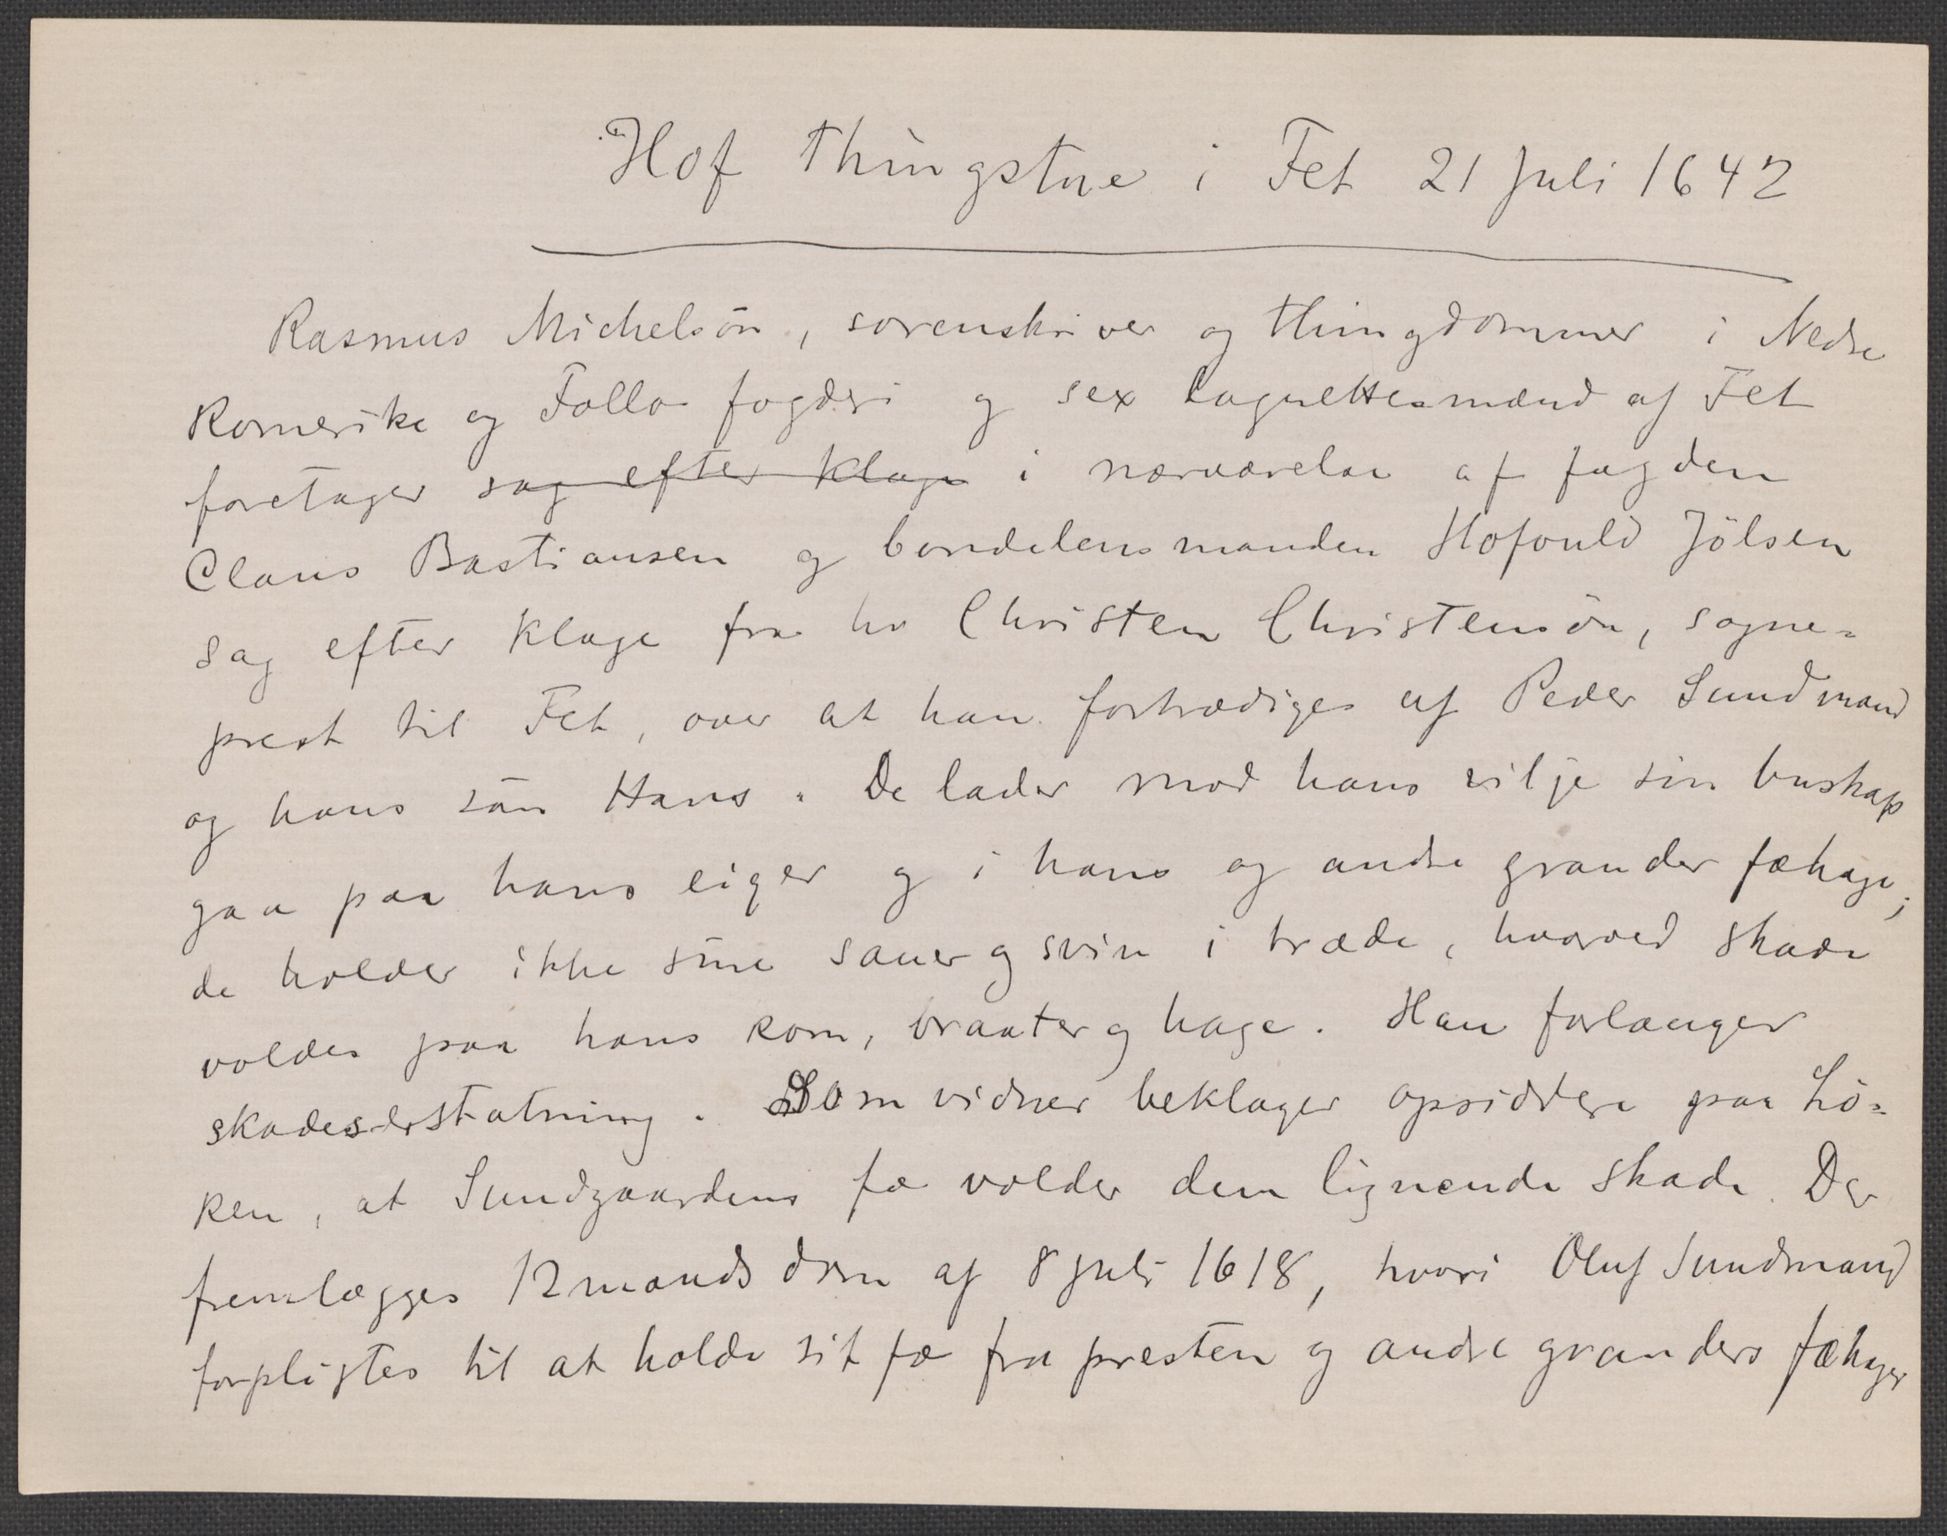 Hof Thingstue i Fet 21 Juli 1642
Rasmus Michelsön, sorenskriver og thingdommer i Nedre
Romerike og Follo fogderi og sex lagrettesmænd af Fet
foretager sag efter klage i nærværelse af fogden
Claus Bastiansen og bondelensmanden Hofould Jölsen
sag efter klage fra hr Christen Christensön, sogne=
prest til Fet, over at han fortrædiges af Peder Sundmand
og hans sön Hans. De lader mod hans vilje sin buskap
gaa paa hans eiger og i hans og andre grander fæhage;
de holder ikke sine sauer og svin i træde, hvorved skade
voldes paa hans korn, braater og hage. Han forlanger
skadeserstatning. Som vidner beklager opsiddere paa Lö=
ken, at Sundgaardens fæ volder dem lignende skade. Der
fremlægges 12mands dom af 8 juli 1618, hvori Oluf Sundmand
forpligtes til at holde sit fæ fra presten og andre granders fæhager